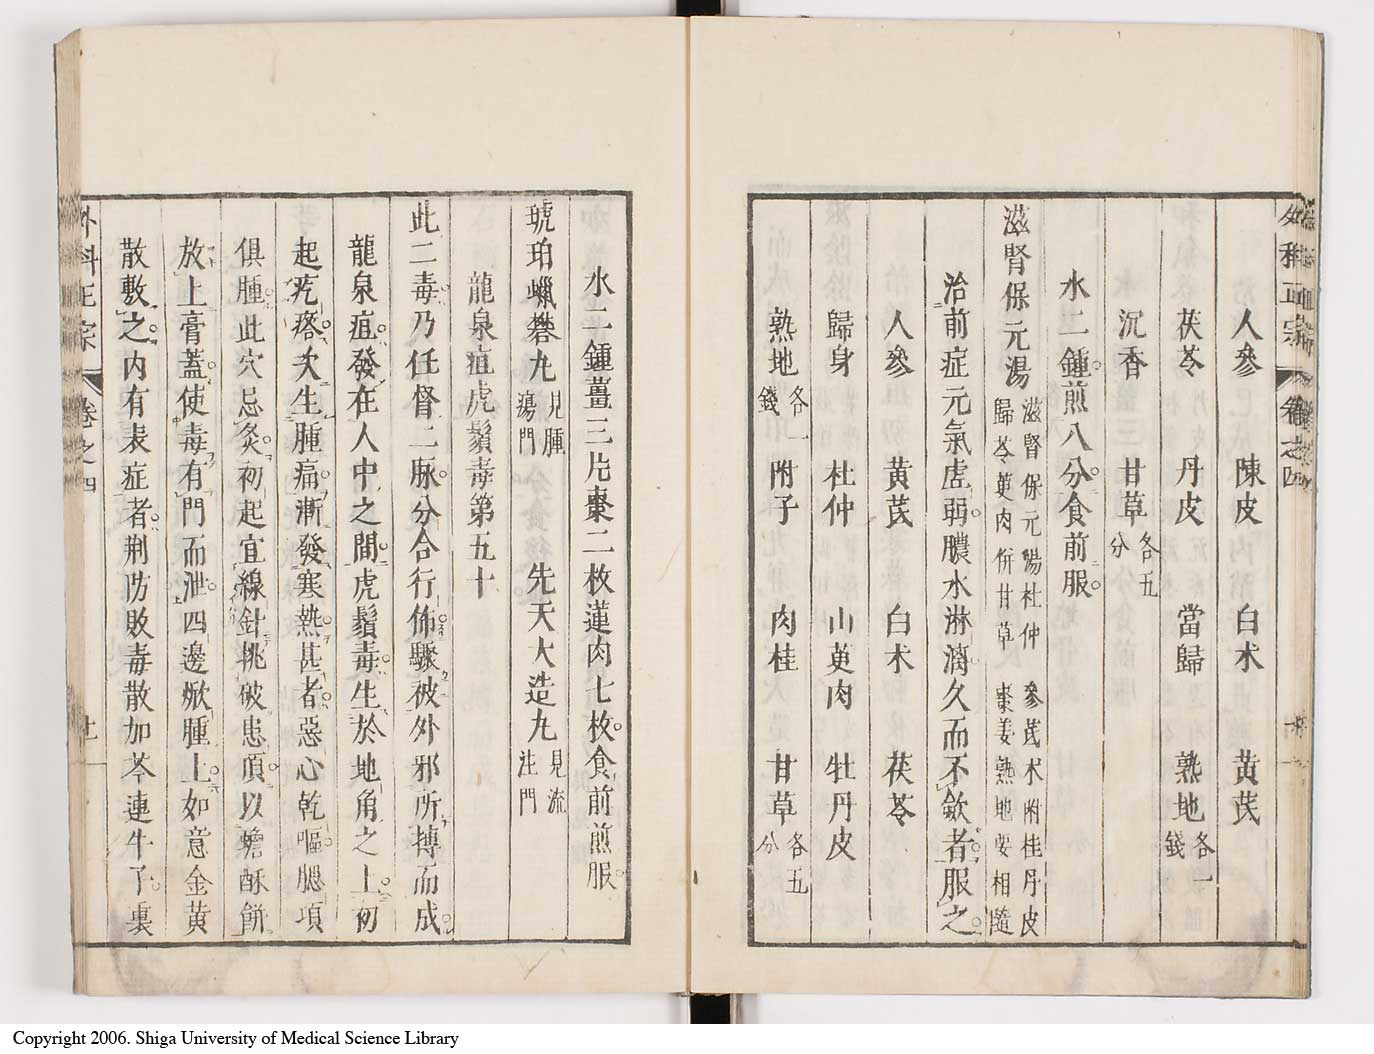 外科正宗 卷之四
人參 陳皮 白朮 黃芪
茯苓 丹皮 當歸 熟地各一錢
沉香 甘草各五分
水二鍾煎八分食前服
滋腎保元湯 滋腎保元湯杜仲 參芪朮附桂丹皮 歸苓萸肉併甘草 棗姜熟地要相隨
治前症元氣虛弱膿水淋漓久而不斂者服之
人參 黃芪 白朮 茯苓
歸身 杜仲 山萸肉 牡丹皮
熟地各一錢 附子 肉桂 甘草各五分
水二鍾薑三片棗二枚蓮肉七枚食前煎服
琥珀蠟礬丸見腫瘍門 先天大造丸見流注門
龍泉疽虎鬚毒第五十
此二毒乃任督二脉分合行佈驟被外邪所搏而成
龍泉疽發在人中之間虎鬚毒生於地角之上初
起疙瘩次生腫痛漸發寒熱甚者惡心乾嘔腮項
俱腫此穴忌灸初起宜線針挑破患頂以蟾酥餅
放上膏蓋使毒有門而泄四邊焮腫上如意金黃
散敷之內有表症者荆防敗毒散加芩連牛子裏
外科正宗 卷之四 廿一
Copyright 2006. Shiga University of Medical Science Library